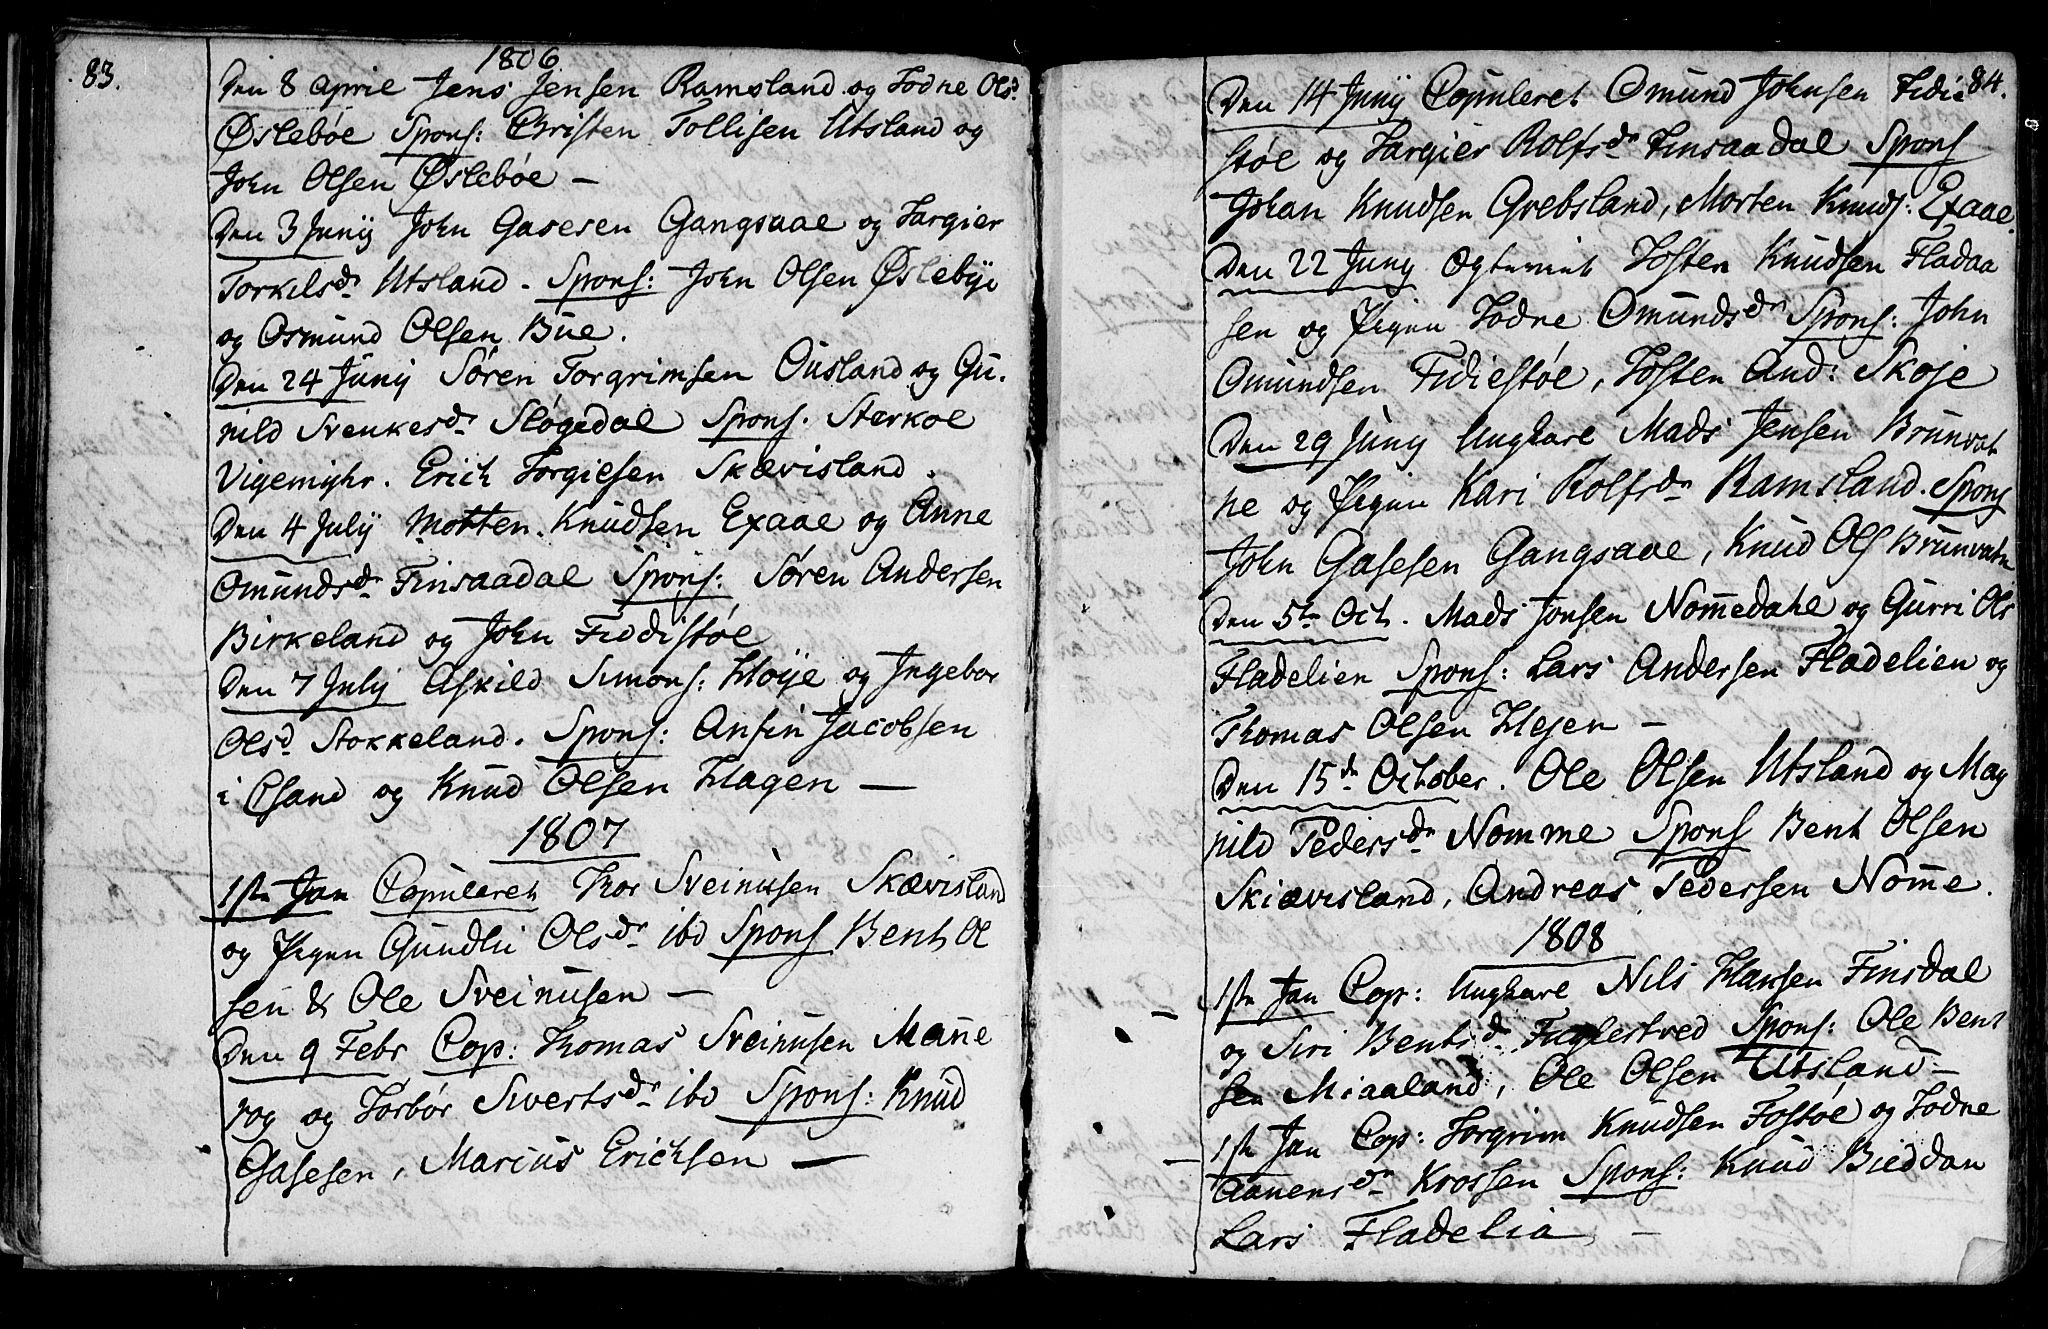 83.
1806
Den 8 April Jens Jensen Ramsland og Todne Olsd.
Øslebøe Spons: Christen Tollisen Utsland og
John Olsen Øslebøe –
Den 3 Junij John Gasesen Gangsaae og Targier
Torkilsdr Utsland. Spons: John Olsen Øslebye
og Osmund Olsen Bue.
Den 24 Junij Søren Torgrimsen Ousland og Gu-
nild Svenkesdr Sløgedal Spons. Sterkoe
Vigemyhr. Erich Torgiesen Skævisland.
Den 4 Julij Motten Knudsen Exaae og Anne
Omundsdr Finsaadal Spons: Søren Andersen
Birkeland og John Fiddistøe
Den 7 Julij Askild Simons: Høije og Ingebor
Olsd Stokkeland. Spons: Anfin Jacobsen
i Csand og Knud Olsen Hagen —
1807
1ste Jan Copuleret Thor Sveinusen Skævisland
og Pigen Gundli Olsdr ibd Spons Bent Ol
sen & Ole Sveinusen —
Den 9 Febr Cop: Thomas Sveinusen Manne
rog og Torbør Sivertsdr ibd Spons: Knud
Gasesen, Marcus Erichsen —
84.
Den 14 Junij Copuleret Omund Johnsen Fidie
støe og Targier Rolfsdr Finsaadal Spons
Johan Knudsen Grebsland, Morten Knuds: Exaae.
Den 22 Junij Tosten Knudsen Fladaa
sen og Pigen Todne Omundsdr Spons: John
Omundsen Fidiestøe, Tosten And: Skoje
Den 29 Junij Ungkare Mads Jensen Brunvat
ne og Pigen Kari Rolfsdr Ramsland. Spons
John Gasesen Gangsaae, Knud Ols Brunvatn
Den 5te Oct. Mads Jonsen Nommedahl og Gurri Ols
Fladelien Spons: Lars Andersen Fladelien og
Thomas Olsen Hejen —
Den 15de October. Ole Olsen Utsland og Mag
nild Pedersdr Nomme Spons Bent Olsen
Skiævisland, Andreas Pedersen Nome.
1808
1ste Jan Cop: Ungkare Nils Hansen Finsdal
og Siri Bentsd. Fuglestved Spons: Ole Bent
sen Miaaland, Ole Olsen Utsland —
1ste Jan Cop: Torgrim Knudsen Fostøe og Todne
Aanensdr Krossen Spons: Knud Bieddan
Lars Fladelia —